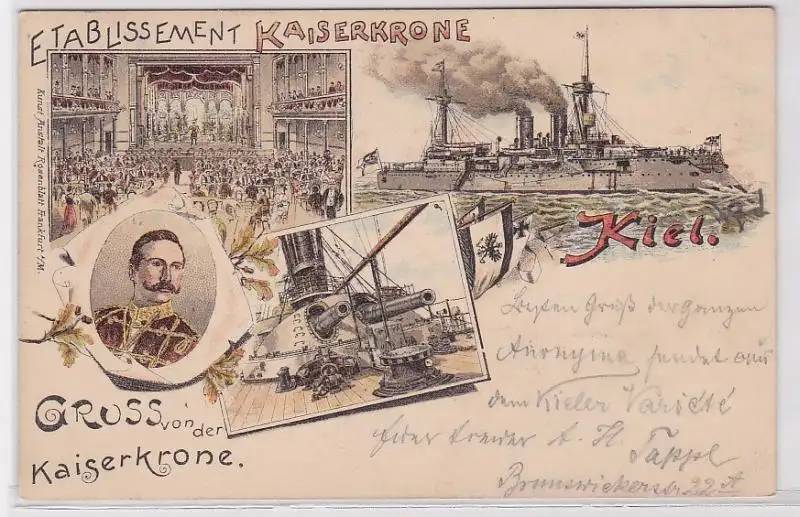 ETABLISSEMENT KAISERKRONE
Kunst Anstalt Rosenblatt Frankfurt a/M.
Kiel.
GRUSS von der
Kaiserkrone.
Besten Gruß der ganzen
sendet aus
dem Kieler Varieté
Brunswickerstr 22 A